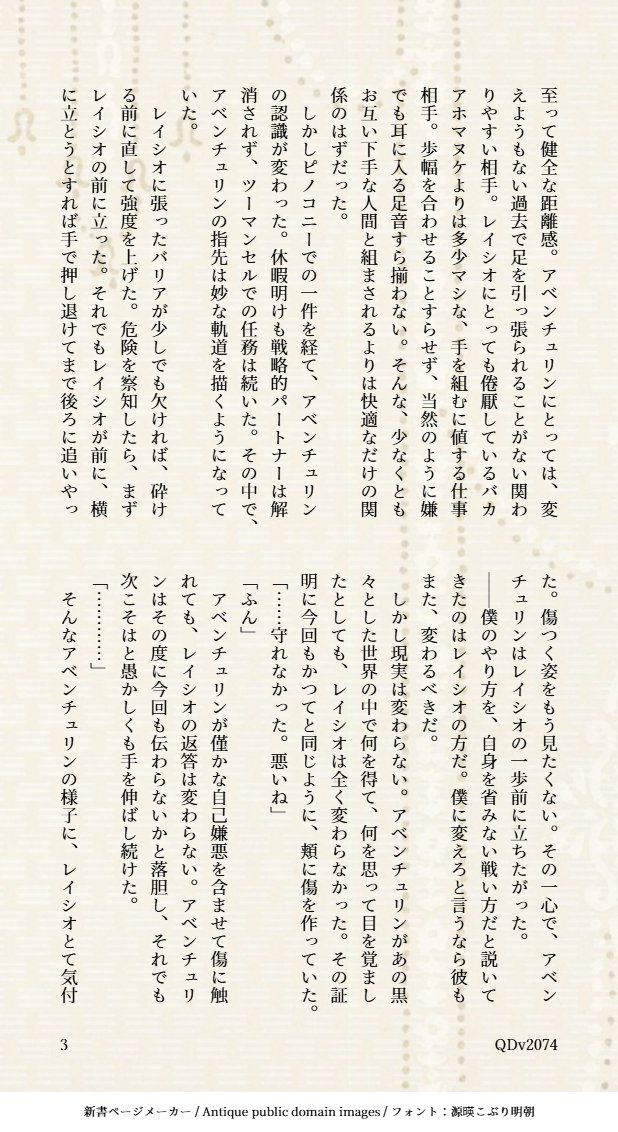 至って健全な距離感。アベンチュリンにとっては、変
えようもない過去で足を引っ張られることがない関わ
りやすい相手。レイシオにとっても倦厭しているバカ
アホマヌケよりは多少マシな、手を組むに値する仕事
相手。歩幅を合わせることすらせず、当然のように嫌
でも耳に入る足音すら揃わない。そんな、少なくとも
お互い下手な人間と組まされるよりは快適なだけの関
係のはずだった。
　しかしピノコニーでの一件を経て、アベンチュリン
の認識が変わった。休暇明けも戦略的パートナーは解
消されず、ツーマンセルでの任務は続いた。その中で、
アベンチュリンの指先は妙な軌道を描くようになって
いた。
　レイシオに張ったバリアが少しでも欠ければ、砕け
る前に直して強度を上げた。危険を察知したら、まず
レイシオの前に立った。それでもレイシオが前に、横
に立とうとすれば手で押し退けてまで後ろに追いやっ
た。傷つく姿をもう見たくない。その一心で、アベン
チュリンはレイシオの一歩前に立ちたがった。
――僕のやり方を、自身を省みない戦い方だと説いて
きたのはレイシオの方だ。僕に変えろと言うなら彼も
また、変わるべきだ。
　しかし現実は変わらない。アベンチュリンがあの黒
々とした世界の中で何を得て、何を思って目を覚まし
たとしても、レイシオは全く変わらなかった。その証
明に今回もかつてと同じように、頬に傷を作っていた。
「……守れなかった。悪いね」
「ふん」
　アベンチュリンが僅かな自己嫌悪を含ませて傷に触
れても、レイシオの返答は変わらない。アベンチュリ
ンはその度に今回も伝わらないかと落胆し、それでも
次こそはと愚かしくも手を伸ばし続けた。
「…………」
　そんなアベンチュリンの様子に、レイシオとて気付
3
QDv2074
新書ページメーカー / Antique public domain images / フォント：源暎こぶり明朝